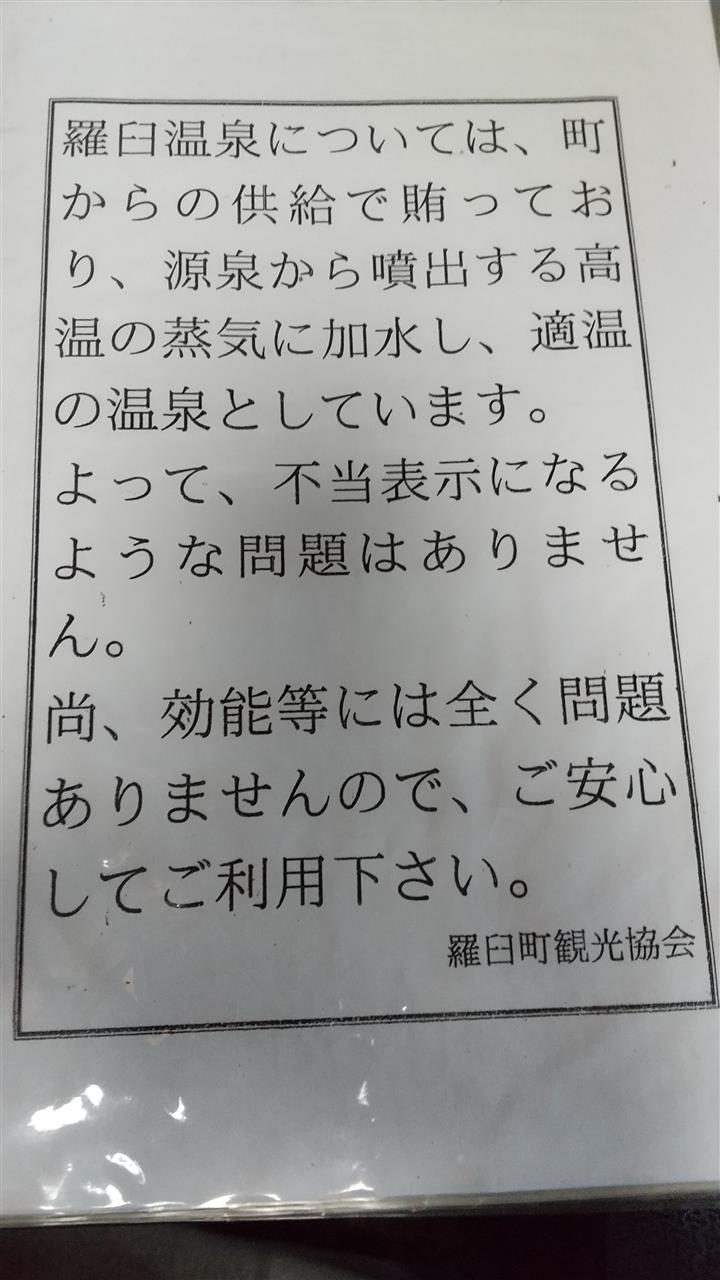 羅臼温泉については、町
からの供給で賄ってお
り、源泉から噴出する高
温の蒸気に加水し、適温
の温泉としています。
よって、不当表示になる
ような問題はありませ
ん。
尚、効能等には全く問題
ありませんので、ご安心
してご利用下さい。
羅臼町観光協会